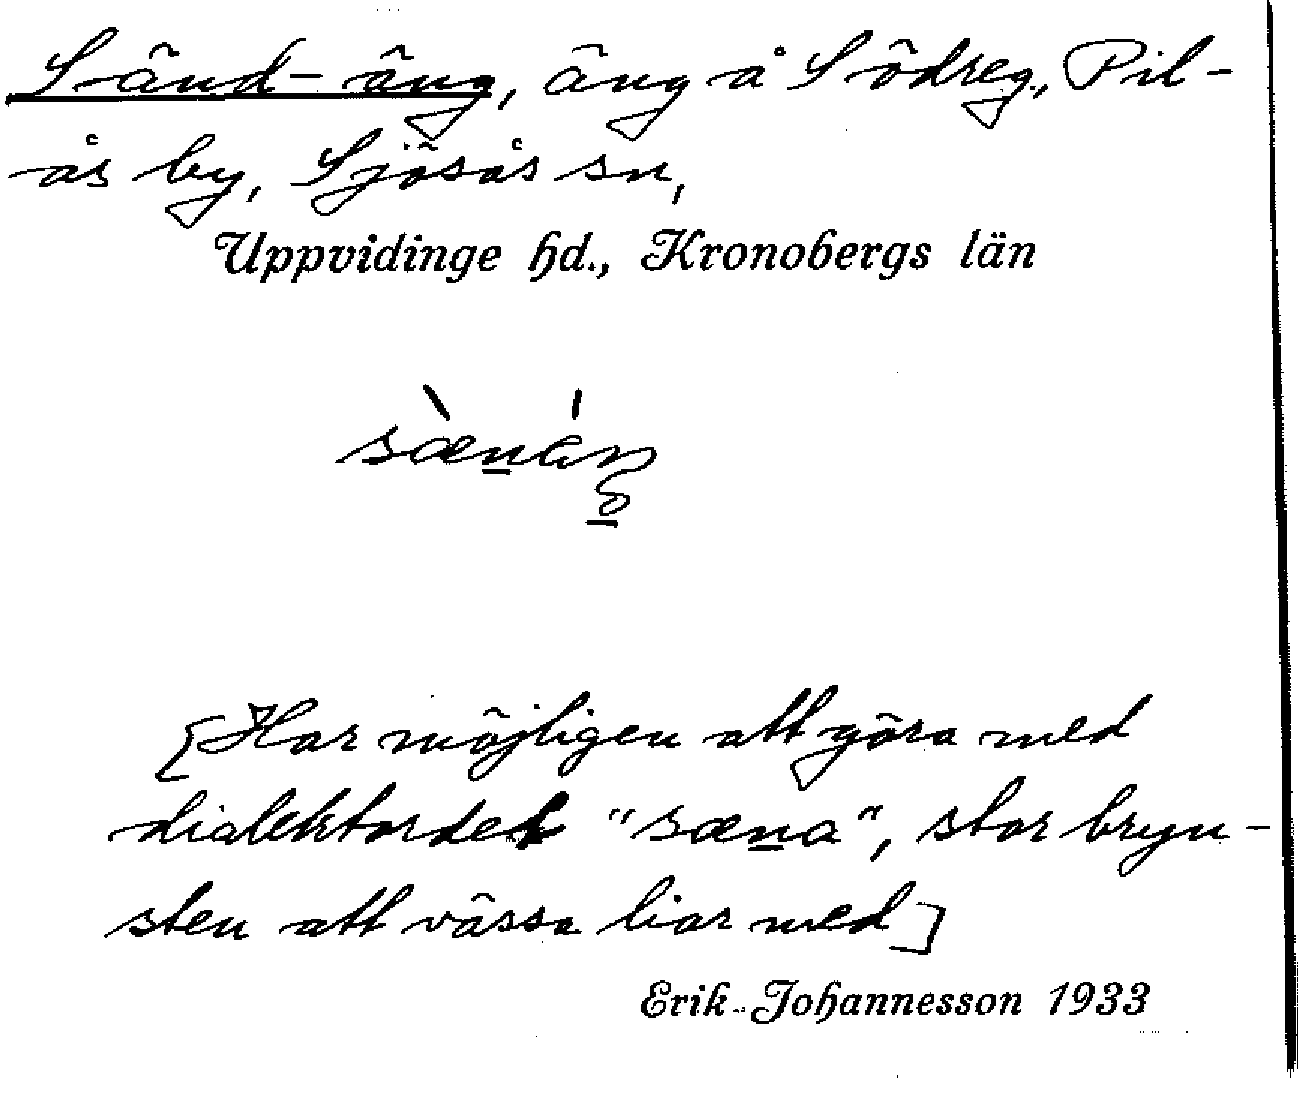 Sänd-äng, äng å Södreg., Pil-
ås by, Sjösås sn,
Uppvidinge hd., Kronobergs län
[Har möjligen att göra med
dialektordet "sæna", stor bryn-
sten att vässa liar med]
Erik Johannesson 1933